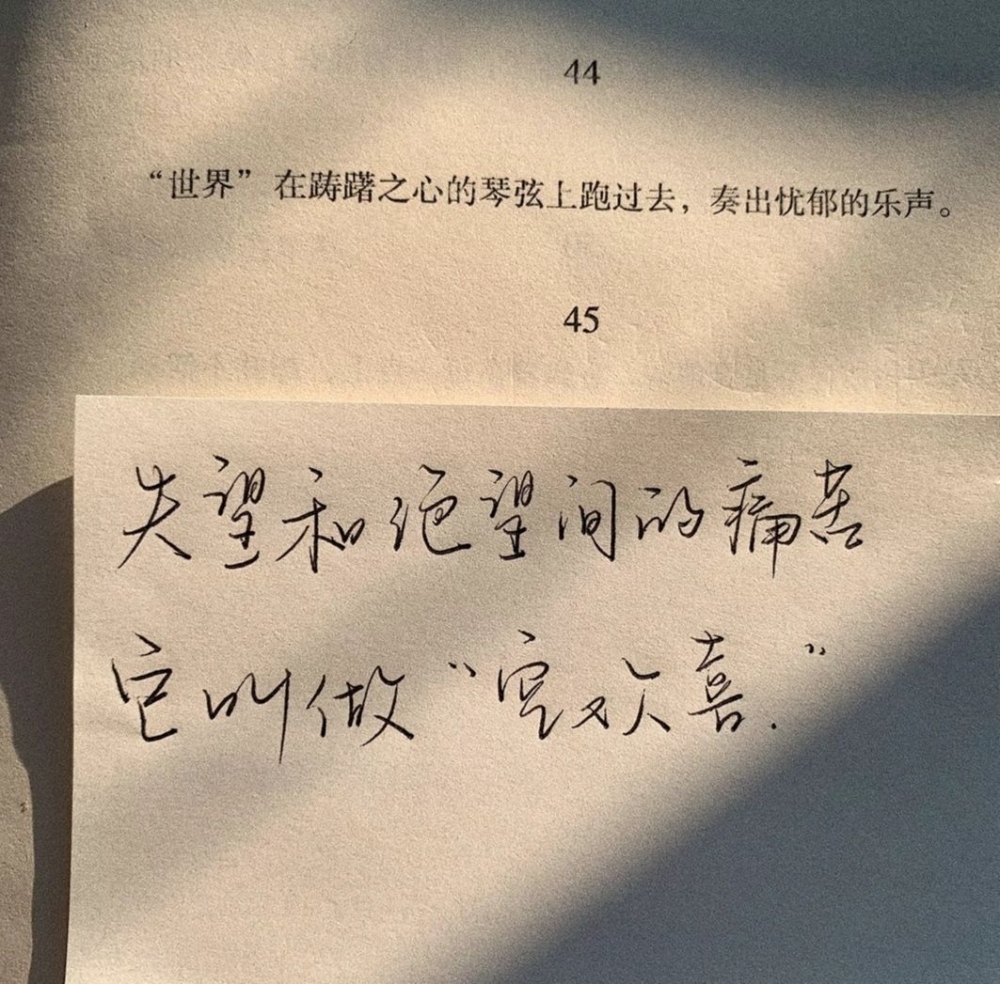 44
“世界”在踌躇之心的琴弦上跑过去，奏出忧郁的乐声。
45
失望和绝望间的痛苦
它叫做“空欢喜.”